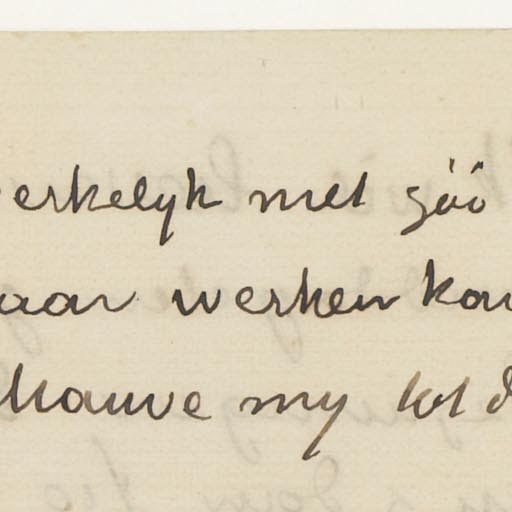 erkelyk met zóó
aar werken kan
Mauve my tot d